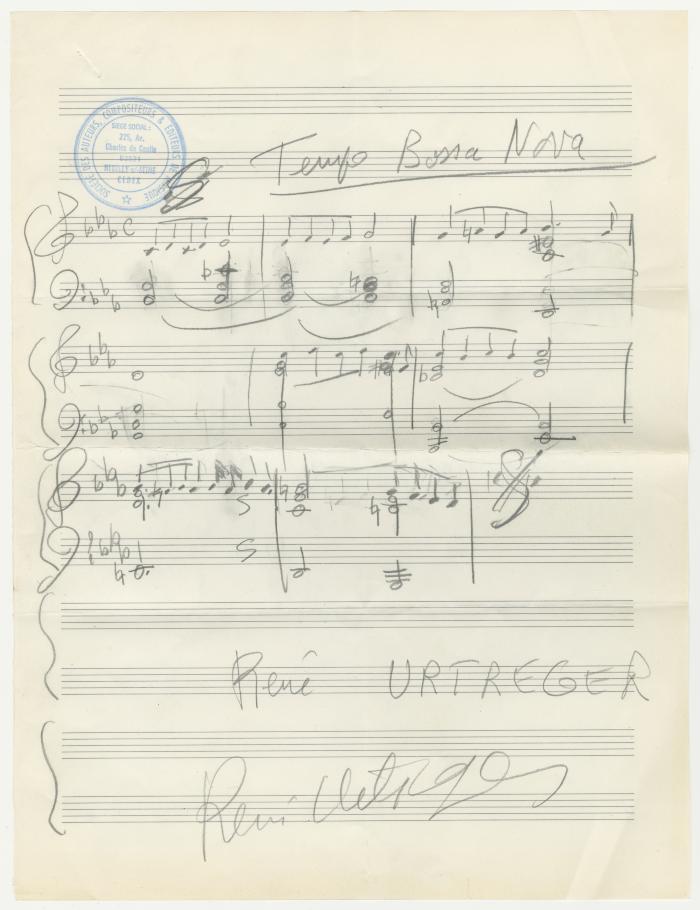 SOCIÉTÉ DES AUTEURS, COMPOSITEURS & ÉDITEURS DE MUSIQUE
SIEGE SOCIAL :
225, Av.
Charles de Gaulle
92521
NEUILLY-s/-SEINE
CEDEX
Tempo Bossa Nova
René URTREGER
René Urtreger